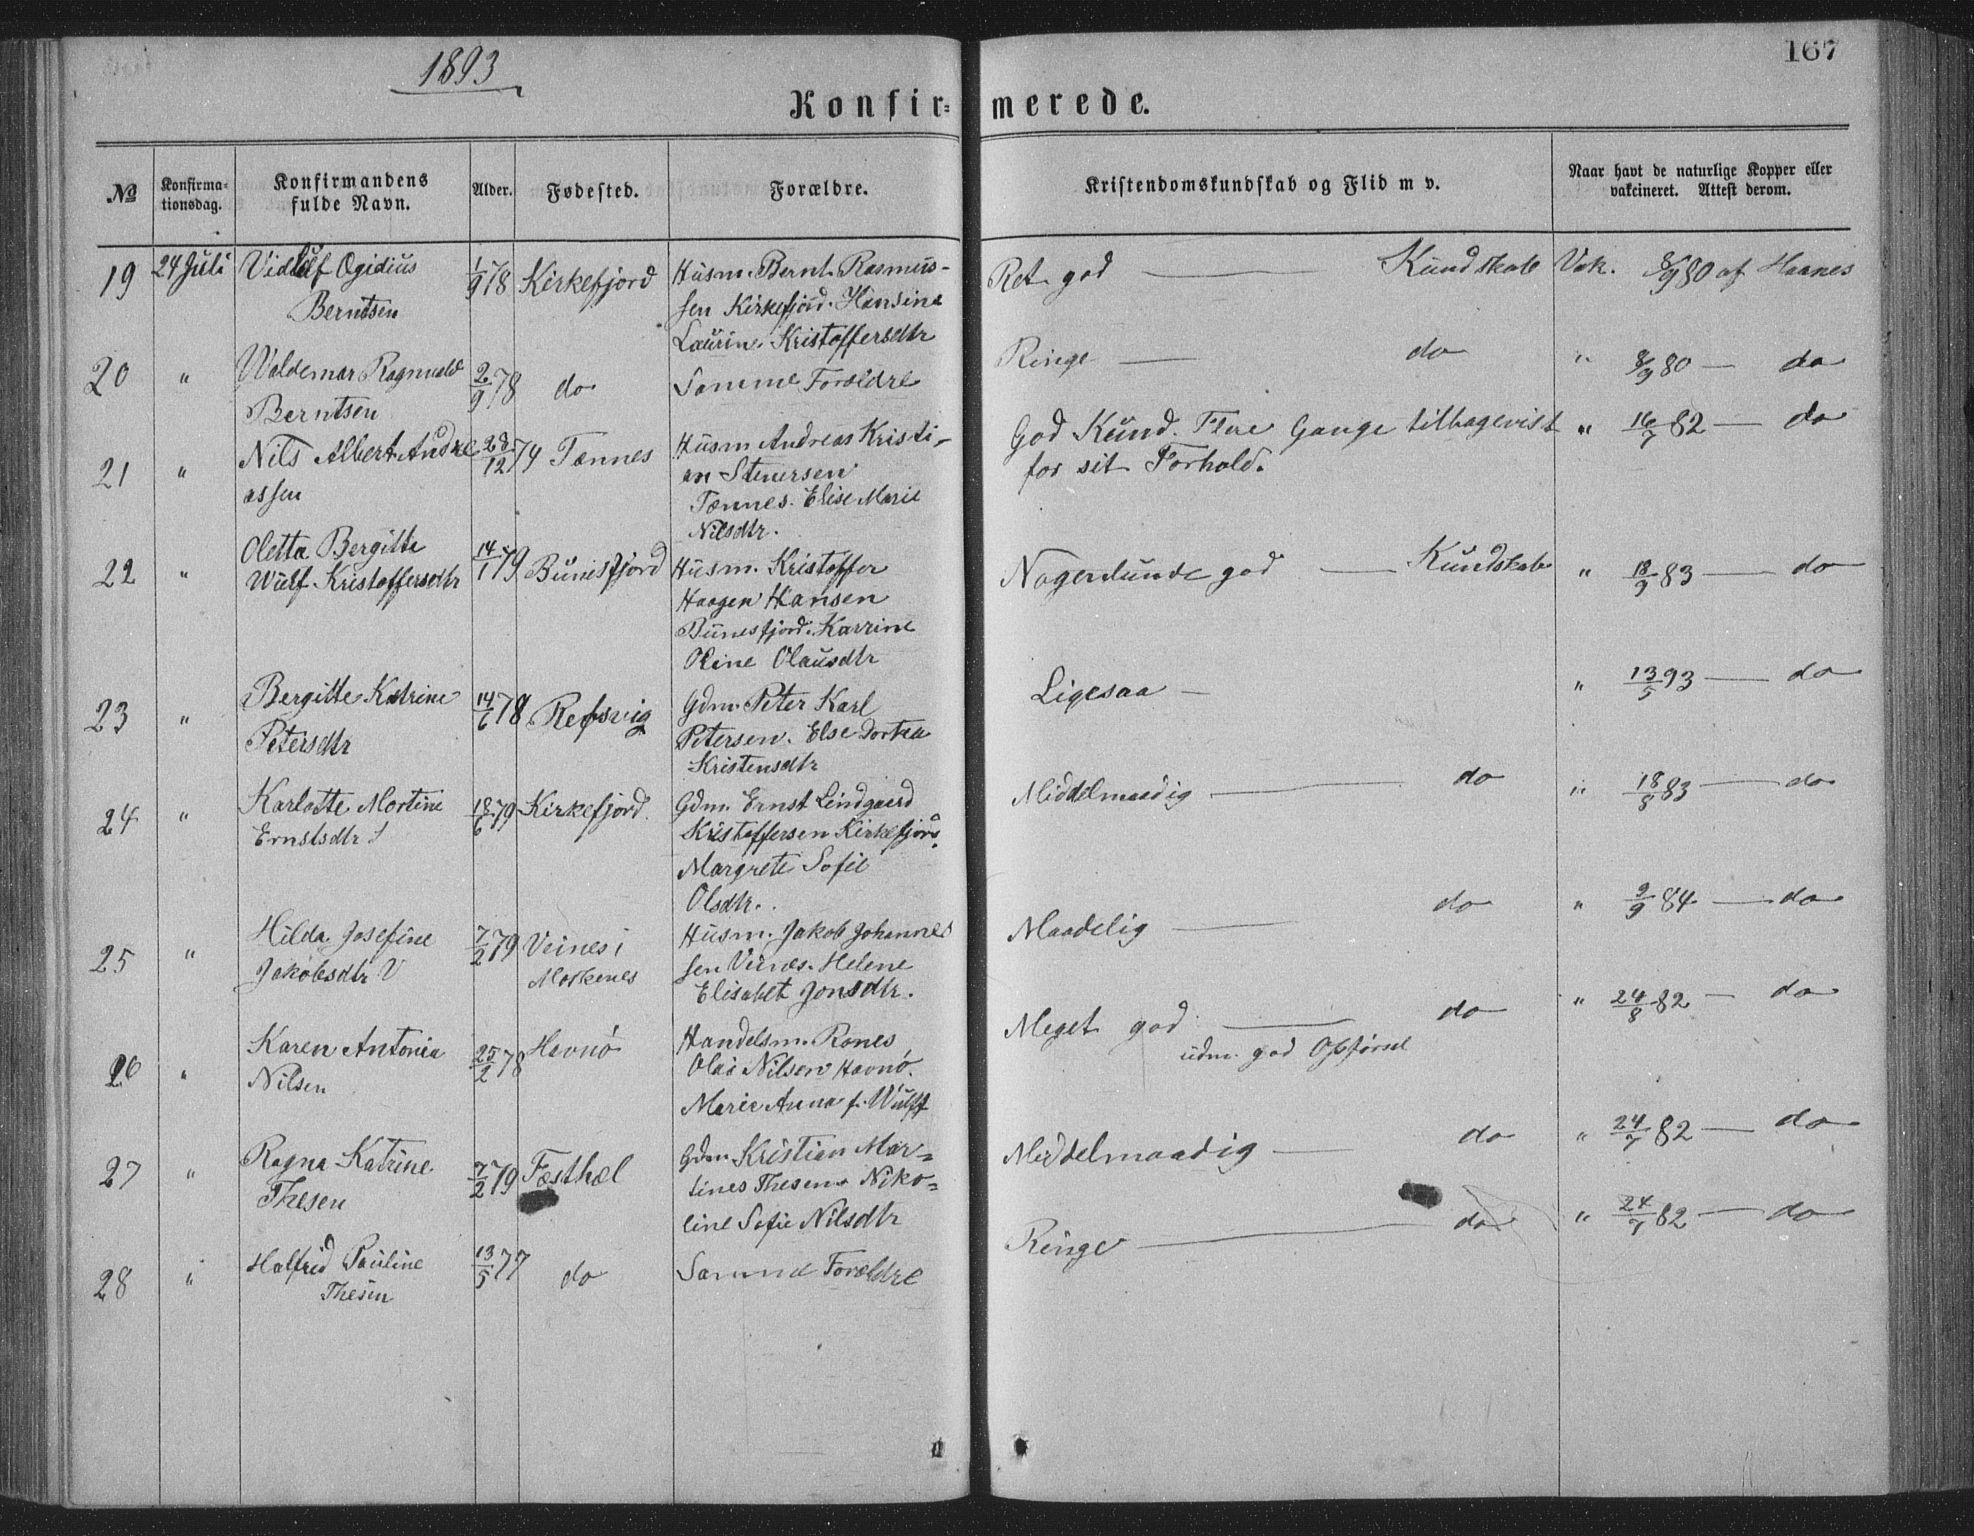 1893
167
Konfir=merede.
№ Konfirma=tionsdag. Konfirmandens fulde Navn. Alder. Fødested. Forældre. Kristendomskundskab og Flid m v. Naar havt de naturlige Kopper eller vakcineret. Attest derom.
19 24 Juli Ægidius 1/9 78 Kirkefjord Husm. Bernt Rasmus- Ret god — Kundskab Vak. 8/9 80 af Haanes
Berntsen sen Kirkefjord. Hansine
Laurine Kristoffersdtr
20 " Waldemar Ragnvald 2/9 78 do Samme Forældre Ringe — do " 8/9 80 — do
Berntsen
21 " Nils Albert Andre 28/12 74 Tennes Husm Andreas Kristi- God Kund. Flere Gange tilbagevist " 16/7 82 — do
assen an Stenersen for sit Forhold.
Tennes. Elise Marie
Nilsdtr.
22 " Oletta Bergitte 14/1 79 Bunesfjord Husm. Kristoffer Nogenlunde god — Kundskab " 18/9 83 — do
Wulf Kristoffersdtr Haagen Hansen
Bunesfjord. Karrine
Oline Olausdtr
23 " Bergitte Katrine 14/6 78 Refsvig Gdm. Peter Karl Ligesaa — " 13/5 93 — do
Petersdtr Petersen. Else Dortea
Kristensdtr
24 " Karlotte Mortine 18/6 79 Kirkefjord. Gdm. Ernst Lindgaard Middelmaadig — do " 18/8 83 — do
Ernstsdtr Kristoffersen Kirkefjord.
Margrete Sofie
Olsdtr.
25 " Hilda Josefine 7/2 79 Veines i Husm. Jakob Johannes Maadelig — do " 9/9 84 — do
Jakobsdtr Moskenes sen Veines. Helene
Elisabet Jonsdtr.
26 " Karen Antonia 25/2 78 Havnø Handelsm. Rones Meget god — do " 24/8 82 — do
Nilsen Olai Nilsen Havnø. udm. god Opførsel
Marie Anna f. Wulff
27 " Ragna Katrine 7/2 79 Festhæl Gdm Kristian Mar= Middelmaadig — do " 24/7 82 — do
Thesen tines Thesen Niko=
line Sofie Nilsdtr
28 " Halfrid Pauline 13/5 77 do Samme Forældre Ringe — do " 24/7 82 — do
Thesen